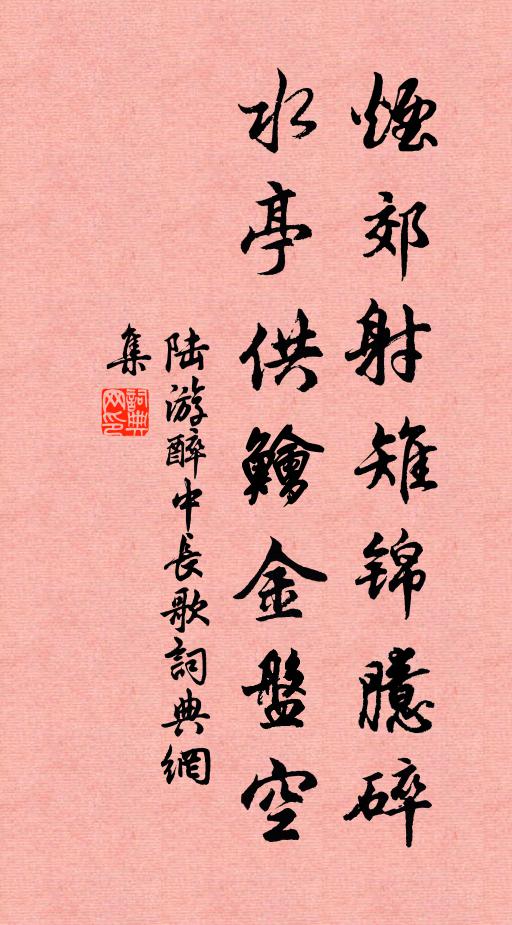 煙郊射雉锦臆碎
水亭供鱠金盤空
陆游醉中长歌詞典網
集
詞典
网印